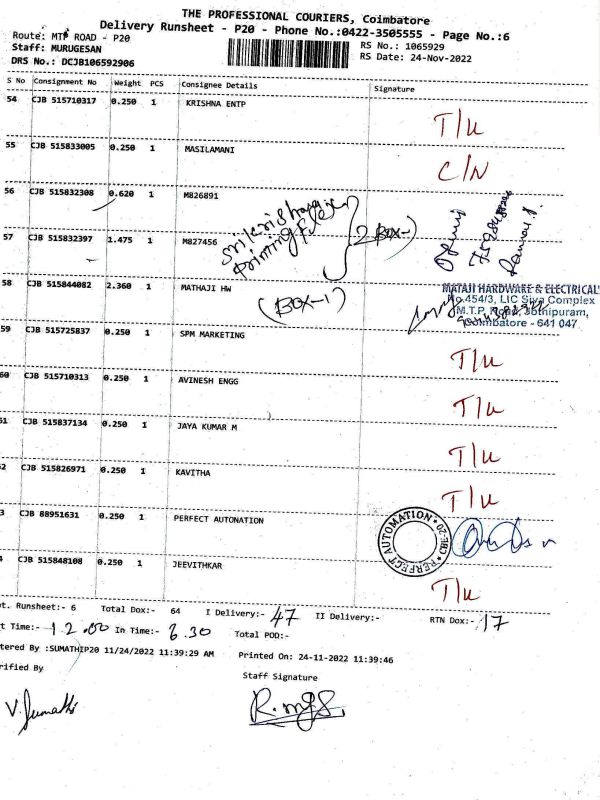 THE PROFESSIONAL COURIERS, Coimbatore
Delivery Runsheet - P20 - Phone No.:0422-3505555 - Page No.:6
Route: MTP ROAD - P20
RS No.: 1065929
Staff: MURUGESAN
RS Date: 24-Nov-2022
DRS No.: DCJB106592906
S No Consignment No Weight PCS Consignee Details Signature
54 CJB 515710317 0.250 1 KRISHNA ENTP T/u
55 CJB 515833005 0.250 1 MASILAMANI C/N
56 CJB 515832308 0.620 1 M826891
Printing
2 Box-1
57 CJB 515832397 1.475 1 M827456
58 CJB 515844082 2.360 1 MATHAJI HW (Box-1)
MATAJI HARDWARE & ELECTRICALS
No.454/3, LIC Siva Complex
M.T.P. Road,
Coimbatore - 641 047
59 CJB 515725837 0.250 1 SPM MARKETING T/u
60 CJB 515710313 0.250 1 AVINESH ENGG T/u
61 CJB 515837134 0.250 1 JAYA KUMAR M T/u
2 CJB 515826971 0.250 1 KAVITHA T/u
3 CJB 88951631 0.250 1 PERFECT AUTONATION
PERFECT AUTOMATION CBE-20
CJB 515848108 0.250 1 JEEVITHKAR T/u
t. Runsheet:- 6 Total Dox:- 64 I Delivery:- 47 II Delivery:- RTN Dox:- 17
t Time:- 12.00 In Time:- 6.30 Total POD:-
tered By :SUMATHIP20 11/24/2022 11:39:29 AM Printed On: 24-11-2022 11:39:46
rified By Staff Signature
V. Sumathi
R.mgs.